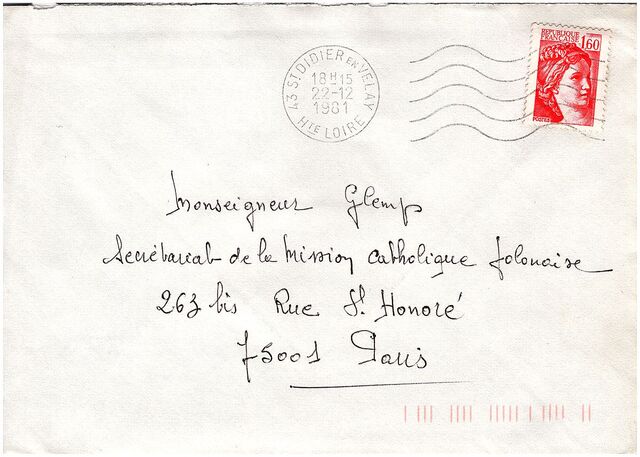 RÉPUBLIQUE
FRANÇAISE
1,60
POSTES
43 ST DIDIER EN VELAY
18H15
22-12
1981
HTE LOIRE
Monseigneur Glemp
Secrétariat de la Mission Catholique Polonaise
263 bis Rue St Honoré
75001 Paris